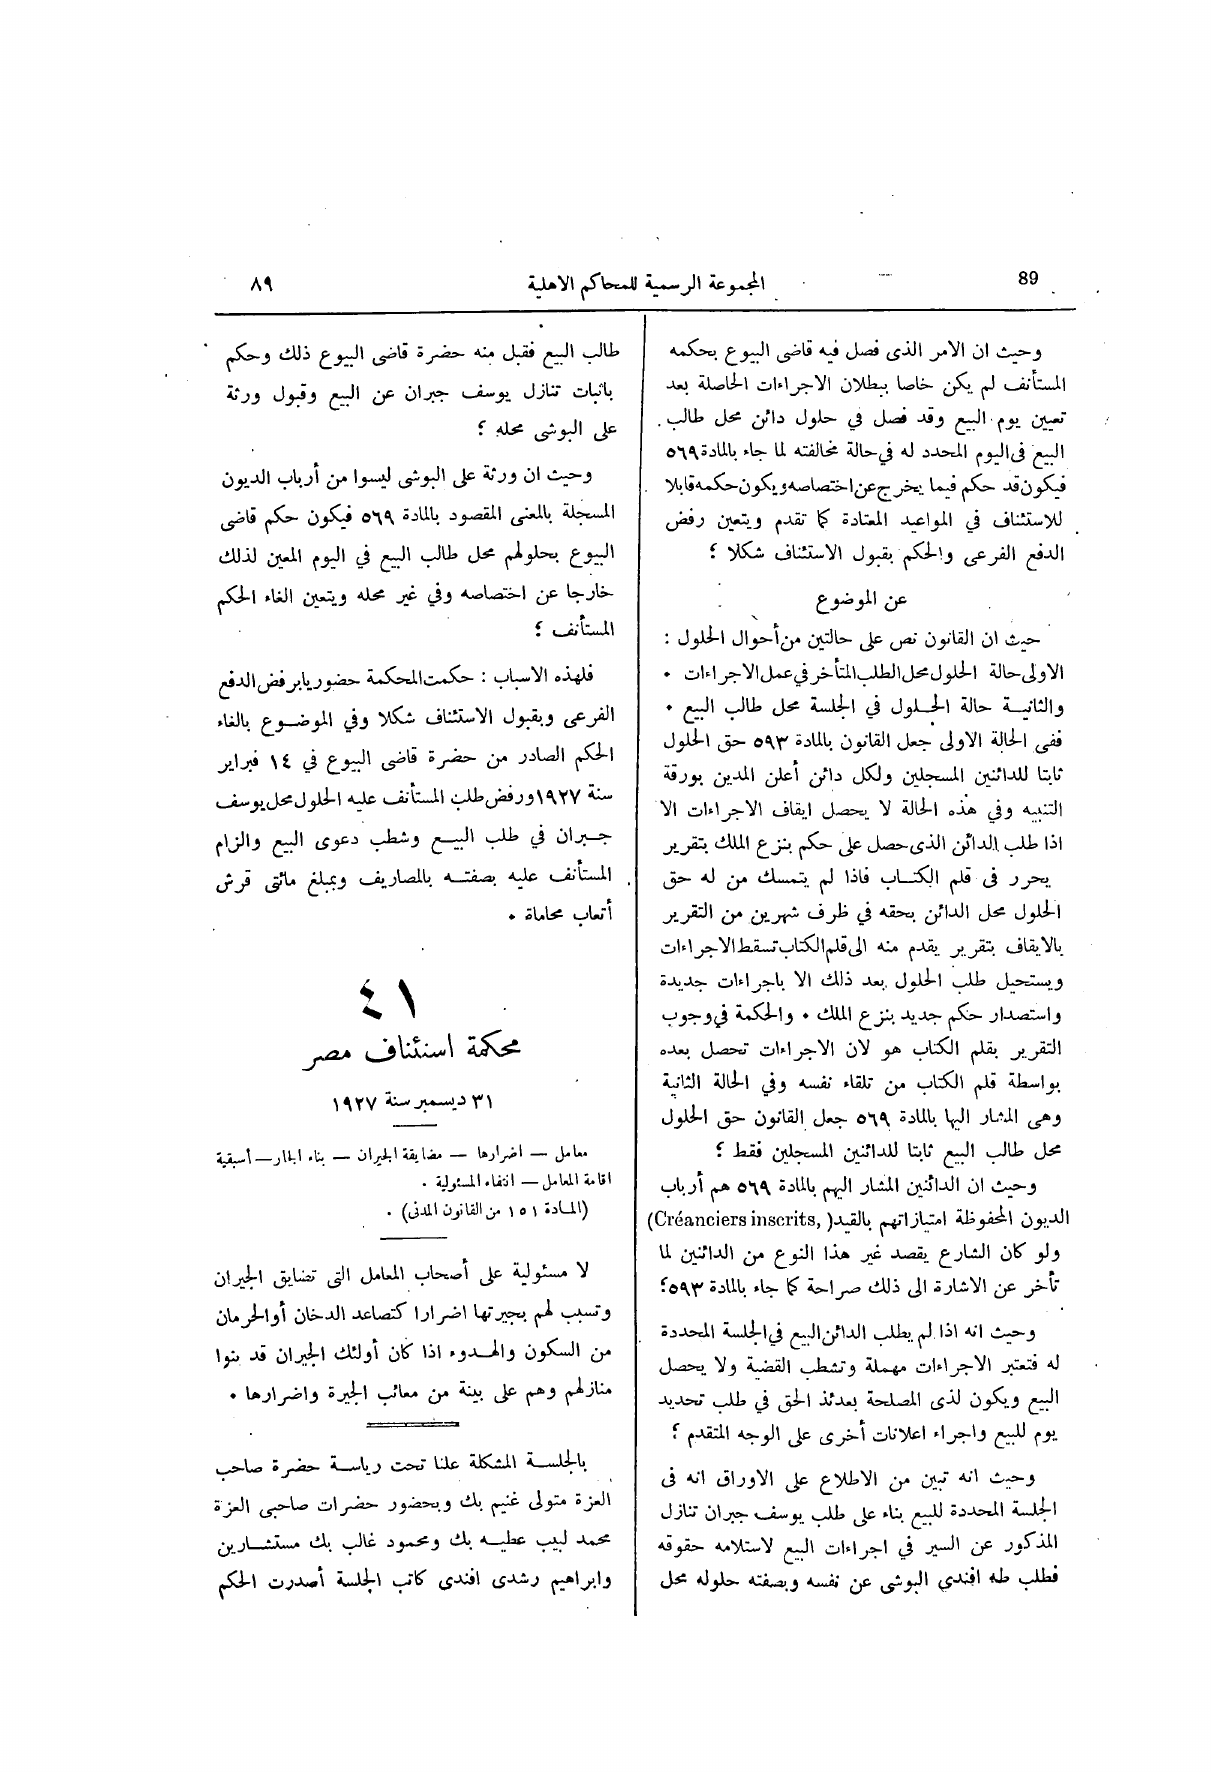 89
المجموعة الرسمية للمحاكم الاهلية
٨٩
وحيث ان الامر الذى فصل فيه قاضى البيوع بحكمه
المستأنف لم يكن خاصا ببطلان الاجراءات الحاصلة بعد
تعيين يوم البيع وقد فصل في حلول دائن محل طالب
البيع فى اليوم المحدد له في حالة مخالفته لما جاء بالمادة ٥٦٩
فيكون قد حكم فيما يخرج عن اختصاصه ويكون حكمه قابلا
للاستئناف في المواعيد المعتادة كما تقدم ويتعين رفض
الدفع الفرعى والحكم بقبول الاستئناف شكلا ؟
عن الموضوع
حيث ان القانون نص على حالتين من أحوال الحلول :
الاولى حالة الحلول محل الطلب المتأخر في عمل الاجراءات .
والثانيــة حالة الحــلول في الجلسة محل طالب البيع .
ففى الحالة الاولى جعل القانون بالمادة ٥٩٣ حق الحلول
ثابتا للدائنين المسجلين ولكل دائن أعلن المدين بورقة
التنبيه وفي هذه الحالة لا يحصل ايقاف الاجراءات الا
اذا طلب الدائن الذى حصل على حكم بنزع الملك بتقرير
يحرر فى قلم الكتــاب فاذا لم يتمسك من له حق
الحلول محل الدائن بحقه في ظرف شهرين من التقرير
بالايقاف بتقرير يقدم منه الى قلم الكتاب تسقط الاجراءات
ويستحيل طلب الحلول بعد ذلك الا باجراءات جديدة
واستصدار حكم جديد بنزع الملك . والحكمة في وجوب
التقرير بقلم الكتاب هو لان الاجراءات تحصل بعده
بواسطة قلم الكتاب من تلقاء نفسه وفي الحالة الثانية
وهى المشار اليها بالمادة ٥٦٩ جعل القانون حق الحلول
محل طالب البيع ثابتا للدائنين المسجلين فقط ؟
وحيث ان الدائنين المشار اليهم بالمادة ٥٦٩ هم أرباب
الديون المحفوظة امتيازاتهم بالقيد( Créanciers inscrits,)
ولو كان الشارع يقصد غير هذا النوع من الدائنين لما
تأخر عن الاشارة الى ذلك صراحة كما جاء بالمادة ٥٩٣؟
وحيث انه اذا لم يطلب الدائن البيع في الجلسة المحددة
له فتعتبر الاجراءات مهملة وتشطب القضية ولا يحصل
البيع ويكون لذى المصلحة بعدئذ الحق في طلب تحديد
يوم للبيع واجراء اعلانات أخرى على الوجه المتقدم ؟
وحيث انه تبين من الاطلاع على الاوراق انه فى
الجلسة المحددة للبيع بناء على طلب يوسف جبران تنازل
المذكور عن السير في اجراءات البيع لاستلامه حقوقه
فطلب طه افندي البوشى عن نفسه وبصفته حلوله محل
طالب البيع فقبل منه حضرة قاضى البيوع ذلك وحكم
باثبات تنازل يوسف جبران عن البيع وقبول ورثة
على البوشى محله ؟
وحيث ان ورثة على البوشى ليسوا من أرباب الديون
المسجلة بالمعنى المقصود بالمادة ٥٦٩ فيكون حكم قاضى
البيوع بحلولهم محل طالب البيع في اليوم المعين لذلك
خارجا عن اختصاصه وفي غير محله ويتعين الغاء الحكم
المستأنف ؟
فلهذه الاسباب : حكمت المحكمة حضوريا برفض الدفع
الفرعى وبقبول الاستئناف شكلا وفي الموضــوع بالغاء
الحكم الصادر من حضرة قاضى البيوع في ١٤ فبراير
سنة ١٩٢٧ ورفض طلب المستأنف عليه الحلول محل يوسف
جــبران في طلب البيــع وشطب دعوى البيع والزام
المستأنف عليه بصفتــه بالمصاريف وبمبلغ مائتى قرش
أتعاب محاماة .
٤١
محكمة استئناف مصر
٣١ ديسمبر سنة ١٩٢٧
معامل — اضرارها — مضايقة الجيران — بناء الجار — أسبقية
اقامة المعامل — انتفاء المسئولية .
(المادة ١٥١ من القانون المدنى) .
لا مسئولية على أصحاب المعامل التى تضايق الجيران
وتسبب لهم بجيرتها اضرارا كتصاعد الدخان أو الحرمان
من السكون والهــدوء اذا كان أولئك الجيران قد بنوا
منازلهم وهم على بينة من معائب الجيرة واضرارها .
بالجلســة المشكلة علنا تحت رياســة حضرة صاحب
العزة متولى غنيم بك وبحضور حضرات صاحبى العزة
محمد لبيب عطيــه بك ومحمود غالب بك مستشــارين
وابراهيم رشدى افندى كاتب الجلسة أصدرت الحكم